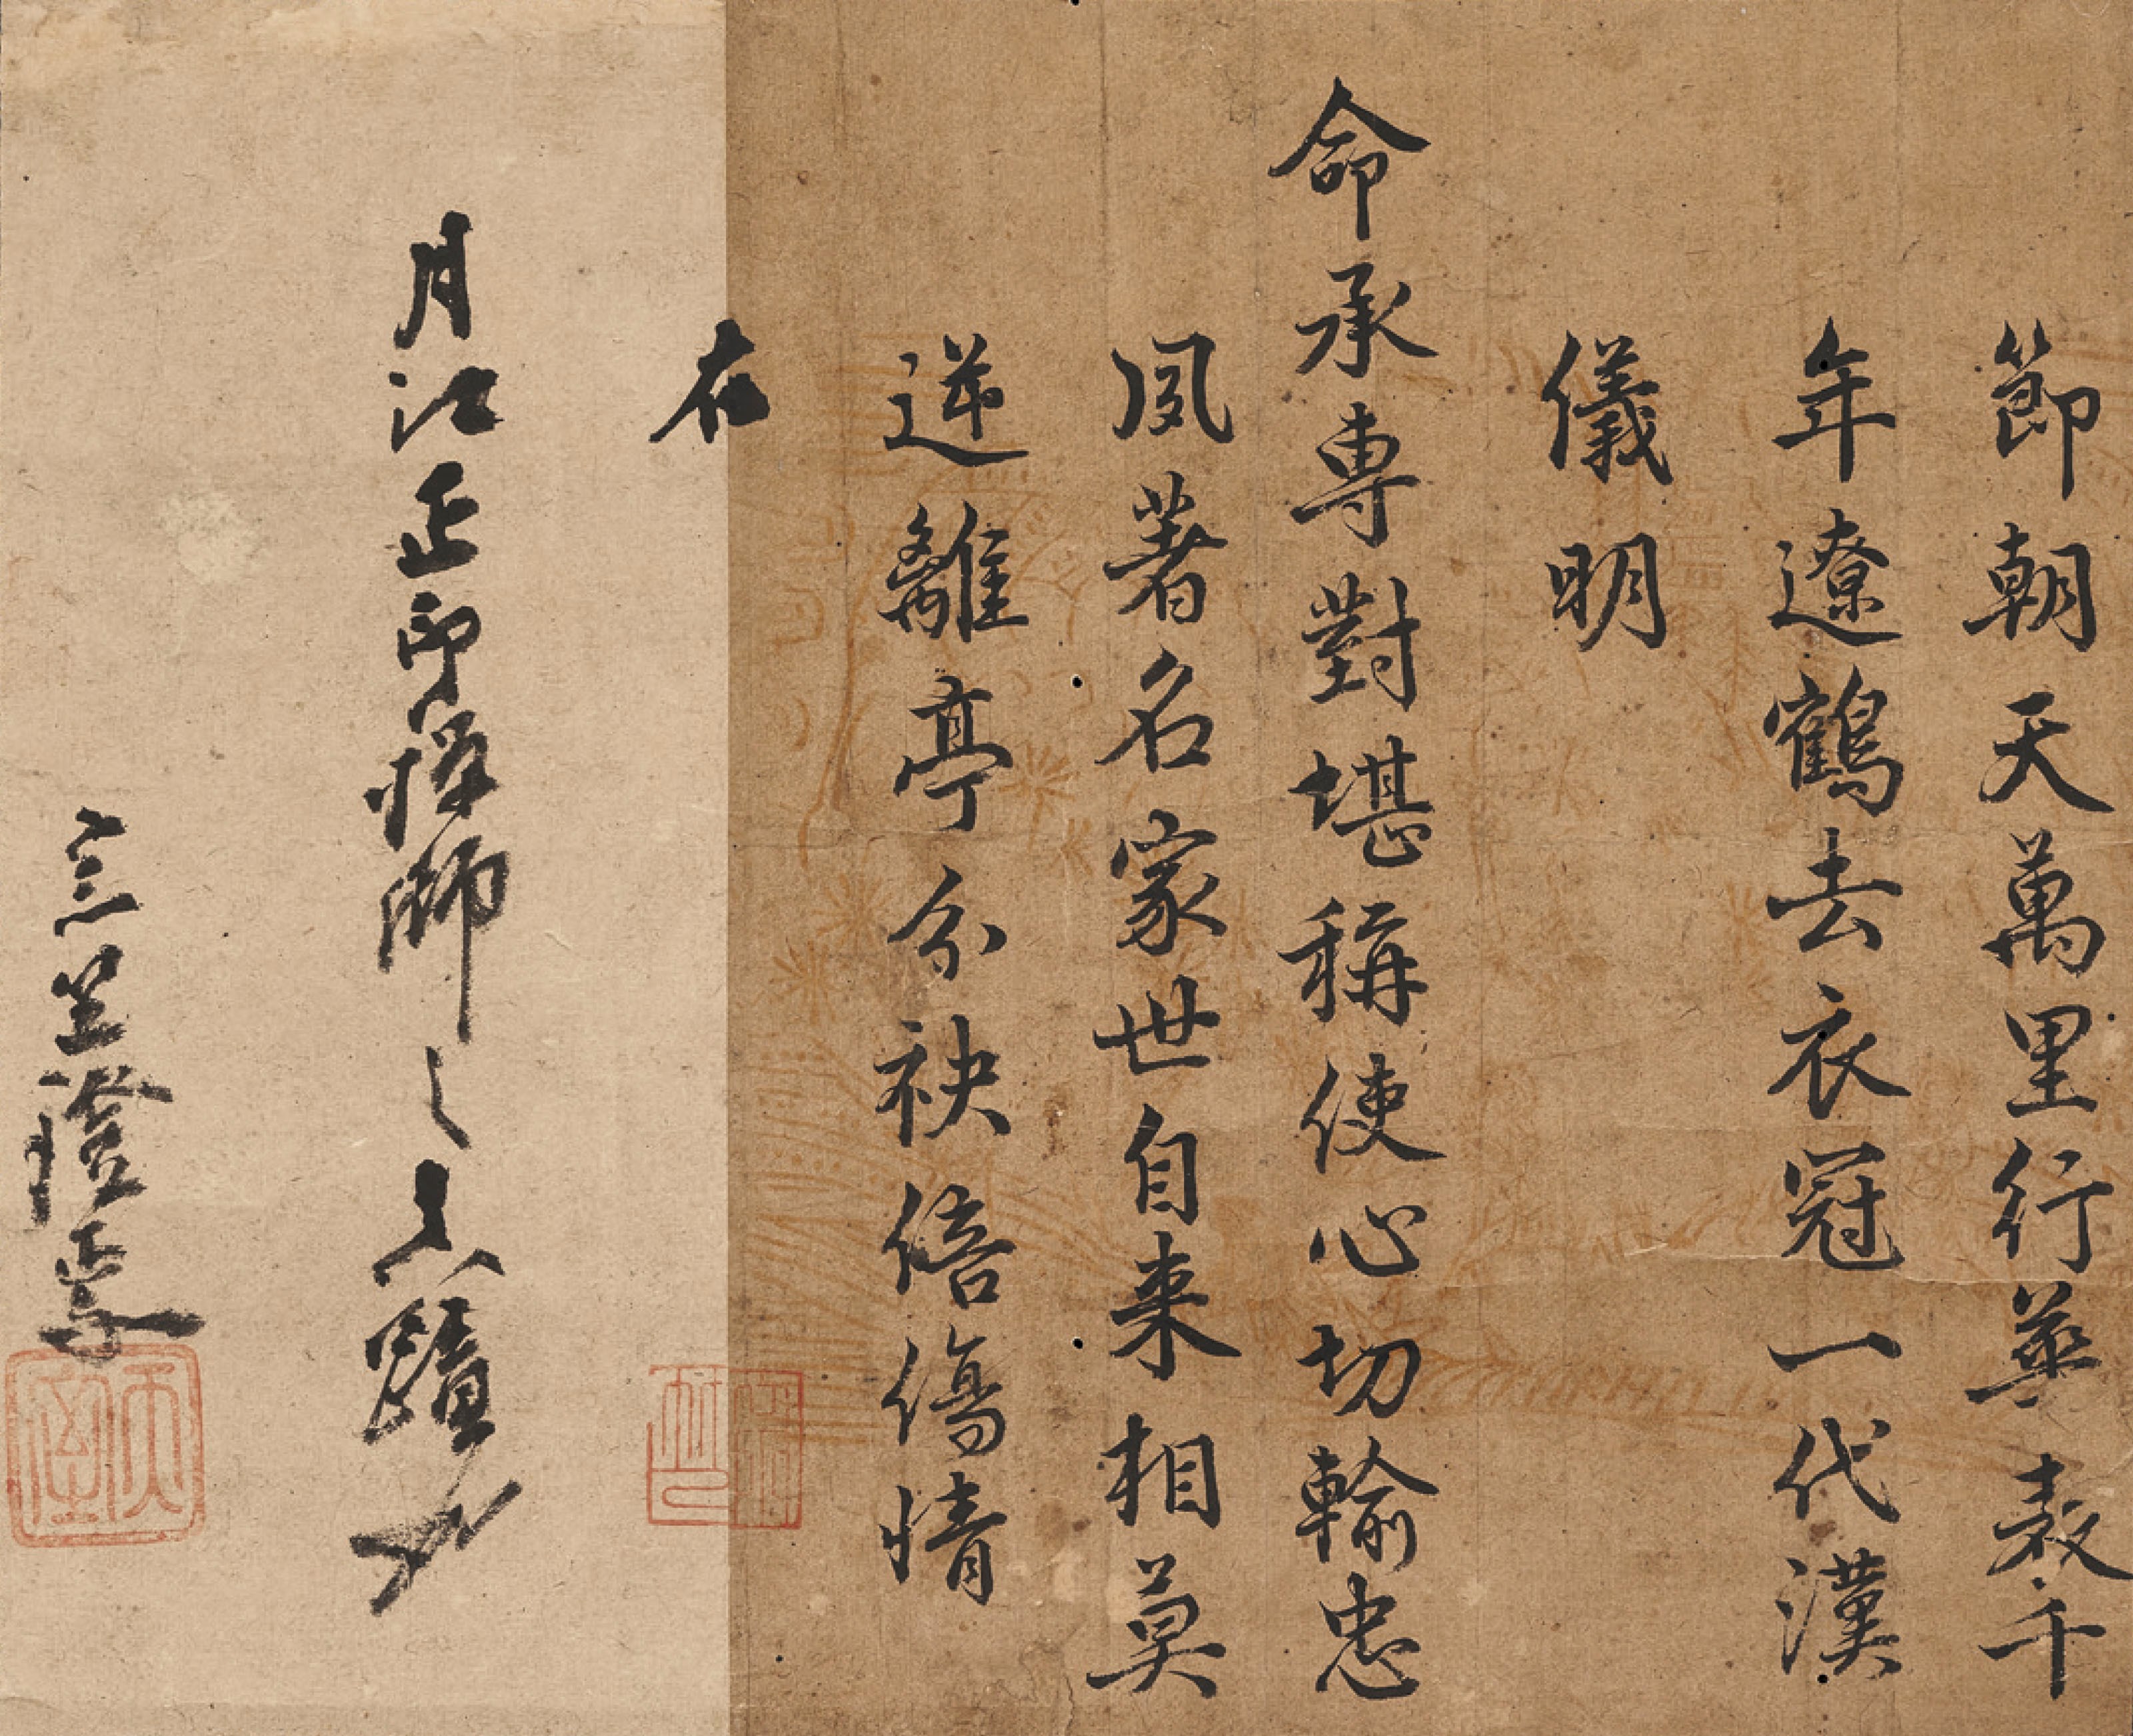 節朝天萬里行華表千
年遼鶴去衣冠一代漢
儀明
命承專對堪稱使心切輸忠
夙著名家世自来相莫
逆離亭分袂倍傷情
在
月江正印禅師之真蹟也